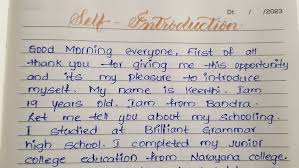 Dt: / /2023
Self - Introduction
Good Morning everyone, First of all
thank you for giving me this opportunity
and its my pleasure to introduce
myself. My name is Keerthi. Iam
19 years old. Iam from Bandra.
Let me tell you about my schooling.
I studied at Brilliant Grammar
high school. I completed my Junior
college education from Narayana college.